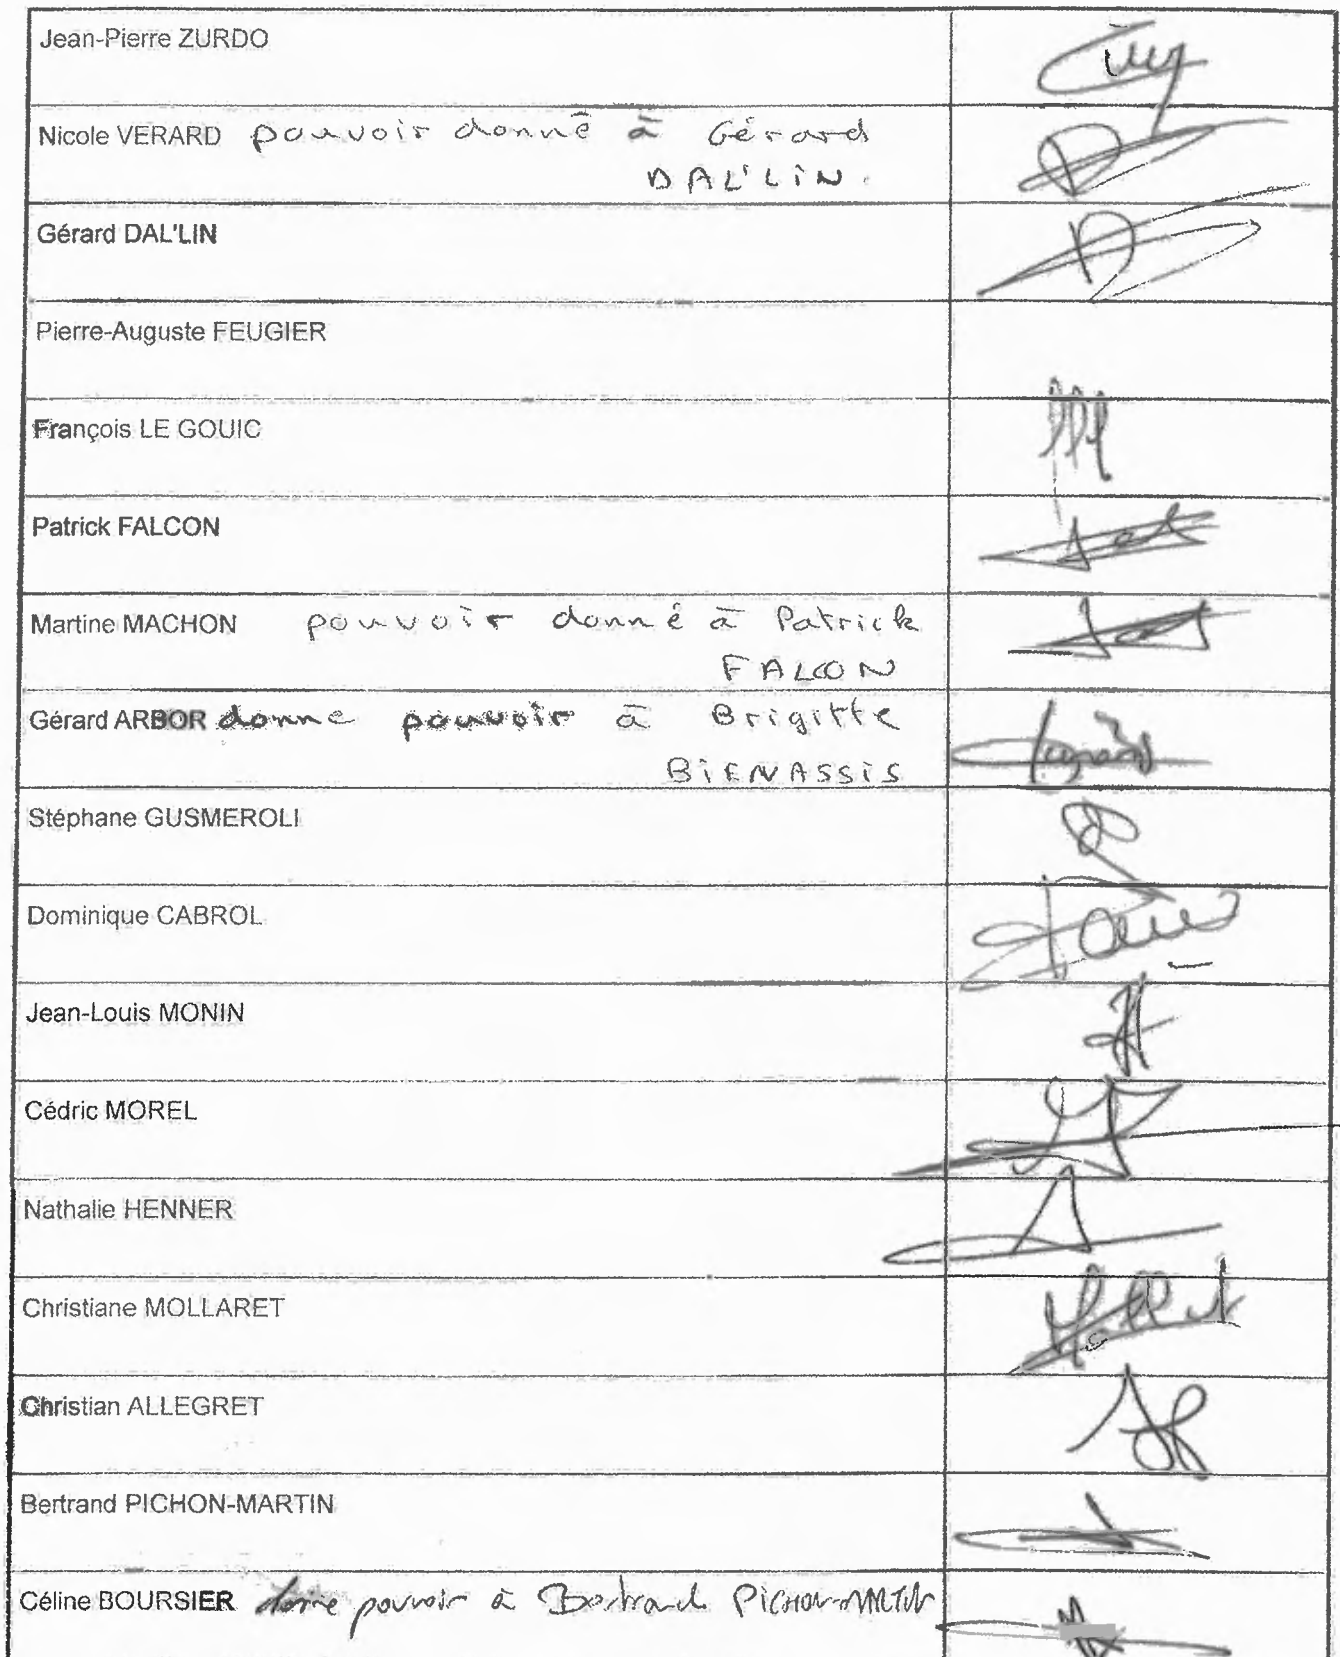 Jean-Pierre ZURDO
Nicole VERARD pouvoir donné à Gérard
DAL'LIN.
Gérard DAL'LIN
Pierre-Auguste FEUGIER
François LE GOUIC
Patrick FALCON
Martine MACHON pouvoir donné à Patrick
FALCON
Gérard ARBOR donne pouvoir à Brigitte
BIENASSIS
Stéphane GUSMEROLI
Dominique CABROL
Jean-Louis MONIN
Cédric MOREL
Nathalie HENNER
Christiane MOLLARET
Christian ALLEGRET
Bertrand PICHON-MARTIN
Céline BOURSIER donne pouvoir à Bertrand PICHON-MARTIN